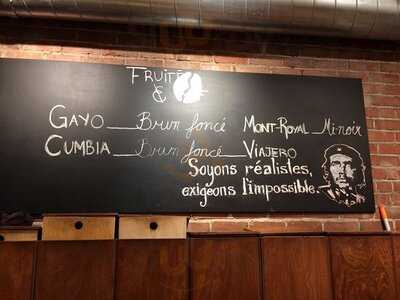 FRUITÉ
&
GAYO Brun foncé MONT-ROYAL Mi-noir
CUMBIA Brun foncé VIAJERO
Soyons réalistes,
exigeons l'impossible.